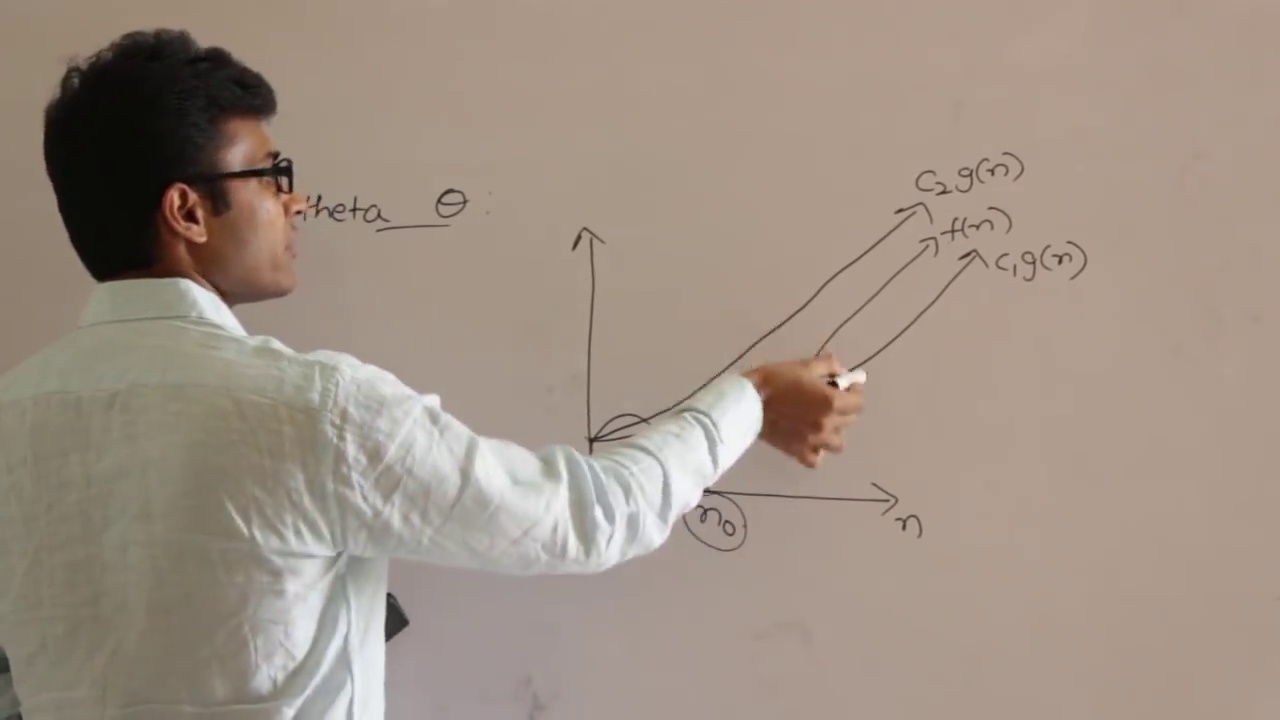 theta θ :
c₂g(n)
f(n)
c₁g(n)
n₀
n